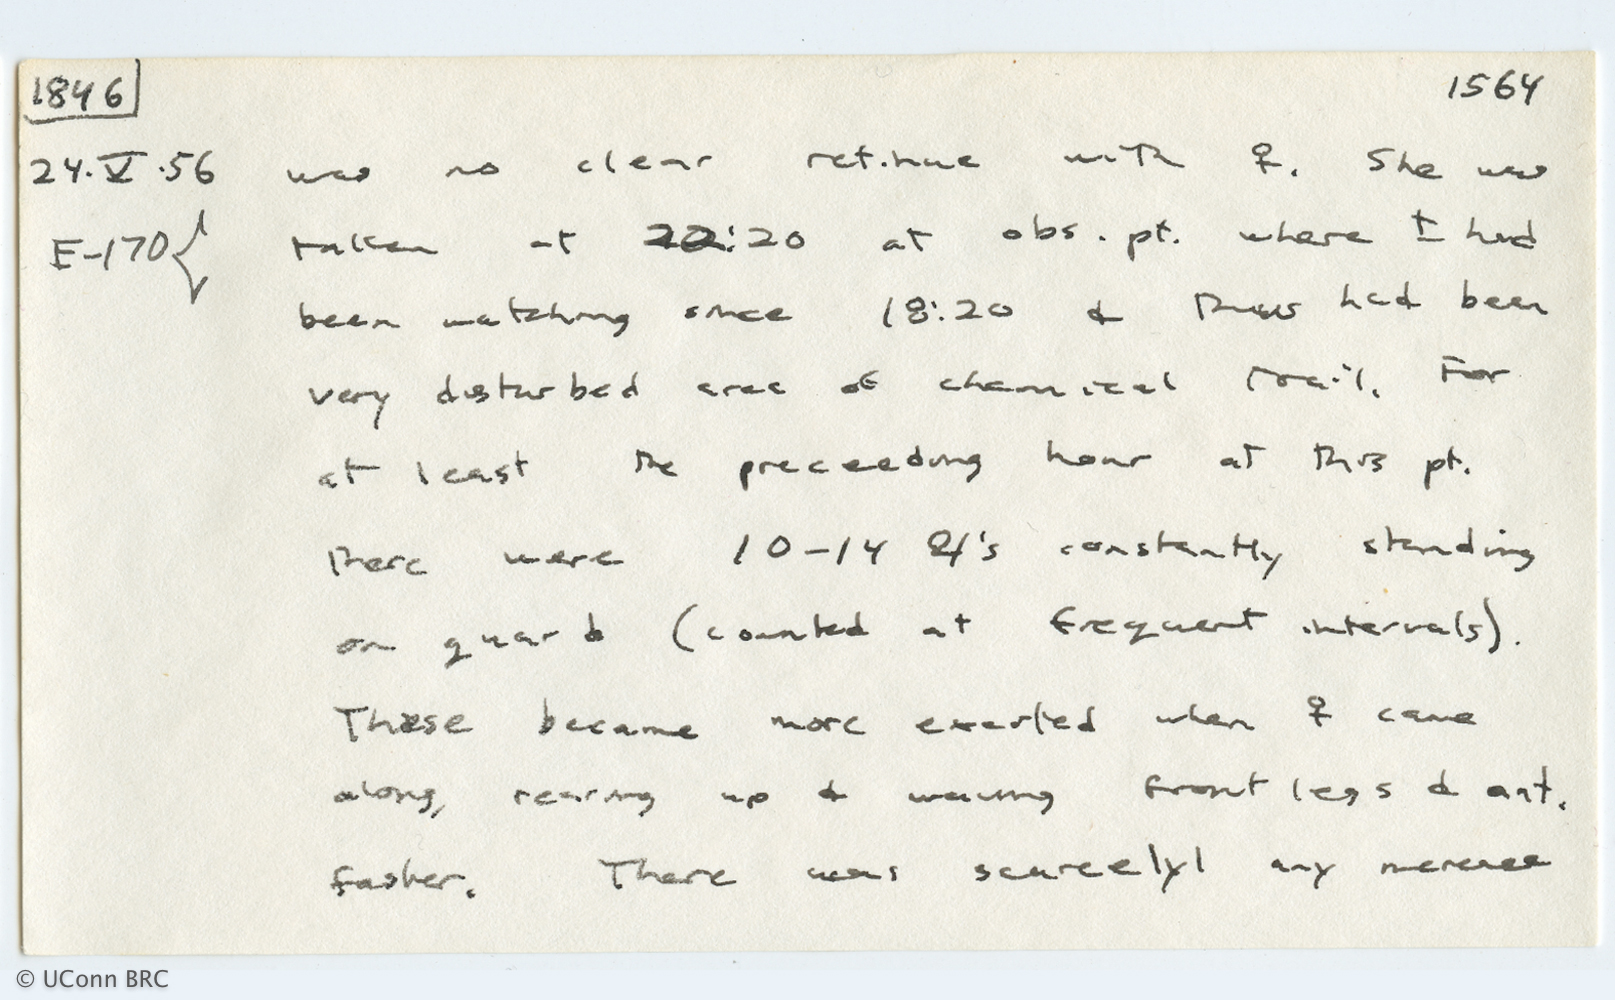 1846 1564
24.V.56 was no clear retinue with ♀. She was
E-170 { taken at 22:20 at obs. pt. where I had
been watching since 18:20 & thus had been
very disturbed area of chemical trail. For
at least the preceeding hour at this pt.
there were 10-14 's constantly standing
on guard (counted at frequent intervals).
These became more excited when ♀ came
along, rearing up & waving front legs & ant.
faster. There was scarcely any increase
© UConn BRC